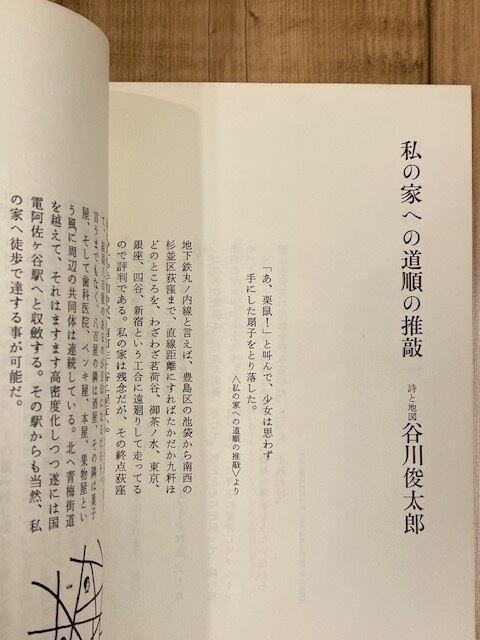 私の家への道順の推敲
詩と地図 谷川俊太郎
「あ、栗鼠！」と叫んで、少女は思わず
手にした扇子をとり落した。
〈私の家への道順の推敲〉より
地下鉄丸ノ内線と言えば、豊島区の池袋から南西の
杉並区荻窪まで、直線距離にすればたかだか九粁ほ
どのところを、わざわざ茗荷谷、御茶ノ水、東京、
銀座、四谷、新宿という工合に遠廻りして走ってる
ので評判である。私の家は残念だが、その終点荻窪
言うまでもなく、八百屋の隣は酒屋、その隣は菓子
屋、そして歯科医院、ペンキ屋、本屋、果物屋とい
う風に周辺の共同体は連続している。北へ青梅街道
を越えて、それはますます高密度化しつつ遂には国
電阿佐ヶ谷駅へと収斂する。その駅からも当然、私
の家へ徒歩で達する事が可能だ。